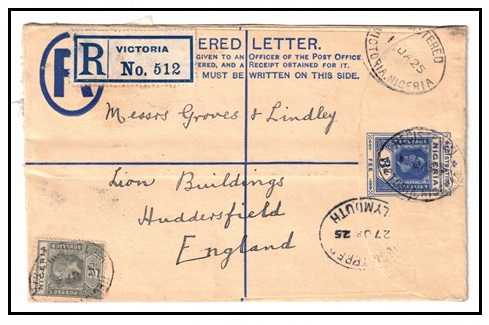 R VICTORIA
No. 512
ERED LETTER.
GIVEN TO AN OFFICER OF THE POST OFFICE
ERED, AND A RECEIPT OBTAINED FOR IT.
MUST BE WRITTEN ON THIS SIDE.
VICTORIA. NIGERIA
JA 25
Messrs Groves & Lindley
Lion Buildings
Huddersfield
England
NIGERIA
POSTAGE
FEE
LYMOUTH
27 JA 25
NIGERIA
POSTAGE